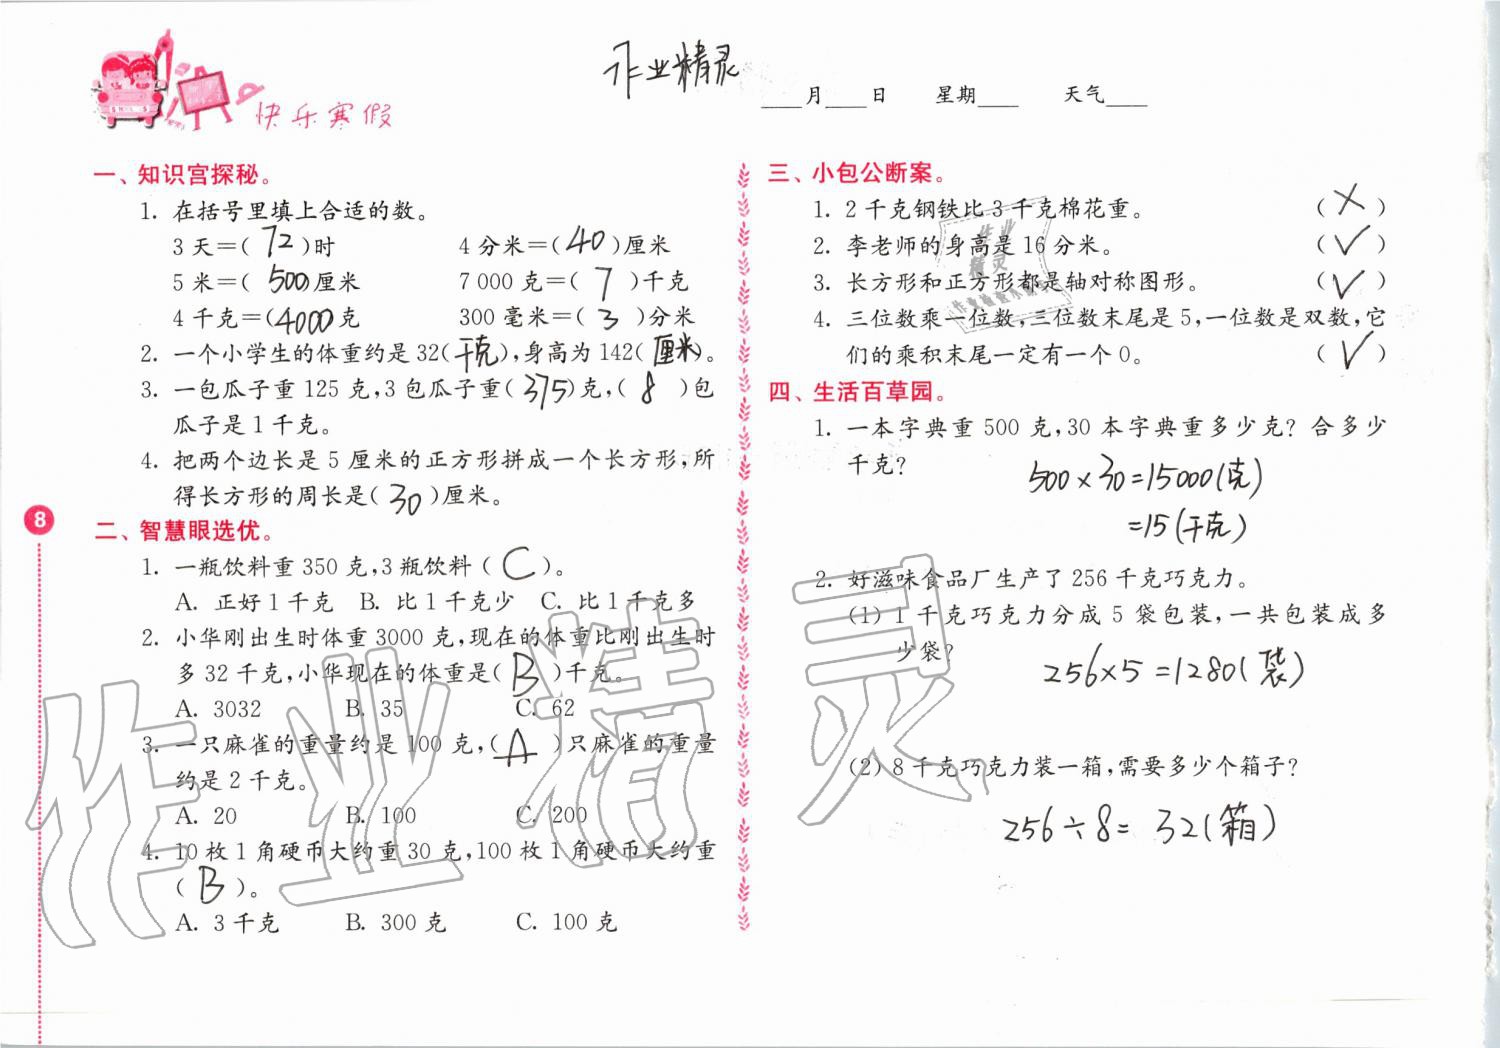 作业精灵
快乐寒假
____月____日 星期____ 天气____
一、知识宫探秘。
1. 在括号里填上合适的数。
3天=( 72 )时 4分米=( 40 )厘米
5米=( 500 厘米 7 000 克=( 7 )千克
4千克=( 4000 克 300 毫米=( 3 )分米
2. 一个小学生的体重约是 32( 千克 ),身高为 142( 厘米 )。
3. 一包瓜子重 125 克,3 包瓜子重( 375 )克,( 8 )包
瓜子是 1 千克。
4. 把两个边长是 5 厘米的正方形拼成一个长方形,所
得长方形的周长是( 30 )厘米。
8
二、智慧眼选优。
1. 一瓶饮料重 350 克,3 瓶饮料( C )。
A. 正好 1 千克 B. 比 1 千克少 C. 比 1 千克多
2. 小华刚出生时体重 3000 克,现在的体重比刚出生时
多 32 千克,小华现在的体重是( B )千克。
A. 3032 B. 35 C. 62
3. 一只麻雀的重量约是 100 克,( A )只麻雀的重量
约是 2 千克。
A. 20 B. 100 C. 200
4. 10 枚 1 角硬币大约重 30 克,100 枚 1 角硬币大约重
( B )。
A. 3 千克 B. 300 克 C. 100 克
三、小包公断案。
1. 2 千克钢铁比 3 千克棉花重。 ( × )
2. 李老师的身高是 16 分米。 ( ✓ )
3. 长方形和正方形都是轴对称图形。 ( ✓ )
4. 三位数乘一位数,三位数末尾是 5,一位数是双数,它
们的乘积末尾一定有一个 0。 ( ✓ )
四、生活百草园。
1. 一本字典重 500 克,30 本字典重多少克? 合多少
千克?
500×30=15000(克)
=15(千克)
2. 好滋味食品厂生产了 256 千克巧克力。
(1) 1 千克巧克力分成 5 袋包装,一共包装成多
少袋?
256×5=1280(袋)
(2) 8 千克巧克力装一箱,需要多少个箱子?
256÷8=32(箱)
作业精灵
作业
精灵